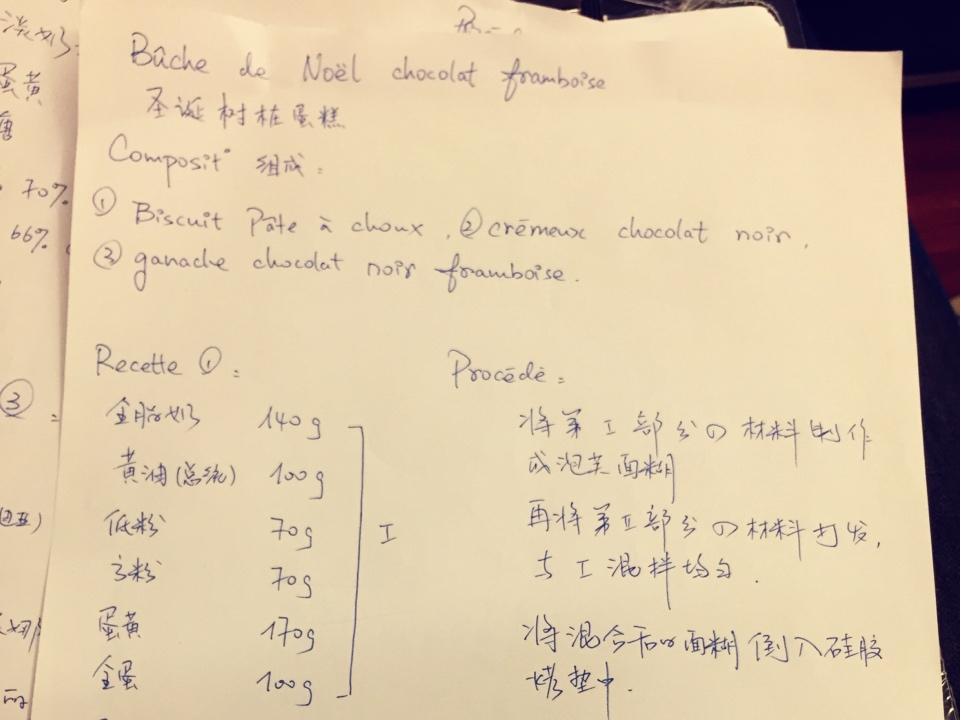 Bûche de Noël chocolat framboise
圣诞树桩蛋糕
Composit° 组成:
① Biscuit Pâte à choux, ② crémeux chocolat noir,
③ ganache chocolat noir framboise.
Recette ①:
全脂奶 140g
黄油(总统) 100g
低粉 70g
高粉 70g
蛋黄 170g
全蛋 100g
I
Procédé:
将第I部分の材料制作
成泡芙面糊
再将第II部分の材料打发,
与I混拌均匀.
将混合后の面糊倒入硅胶
烤垫中.
淡奶
蛋黄
70%
66%
③ :